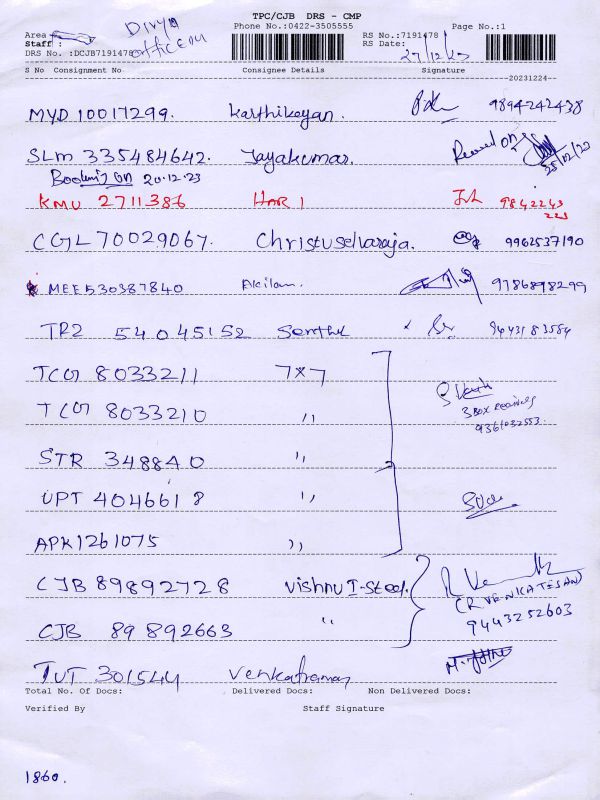 TPC/CJB DRS - CMP
Area Divya Phone No.:0422-3505555 RS No.:7191478 Page No.:1
Staff : officeou RS Date: 27/12/23
DRS No. :DCJB7191478
S No Consignment No Consignee Details Signature
20231224
MYD 10017299. Karthikeyan. 9894242438
SLM 335484642. Jayakumar. 25/12/23
Booking on 20.12.23
KMU 2711386 HARI 9842243
223
CGL 70029067. Christuselvaraja. 9962537190
MEE530387840 Akilan. 9786898299
TRZ 54045152 Senthil 9443183584
TCG 8033211 7x7
TCG 8033210 ,,
3 Box received
9361032553.
STR 348840 ,,
UPT 4046618 ,,
APK1261075 ,,
CJB 89892728 Vishnu I-Steel.
(R VENKATESAN)
CJB 89892663 ,, 9443252603
TUT 301544 Venkatraman M. John
Total No. Of Docs: Delivered Docs: Non Delivered Docs:
Verified By Staff Signature
1860.